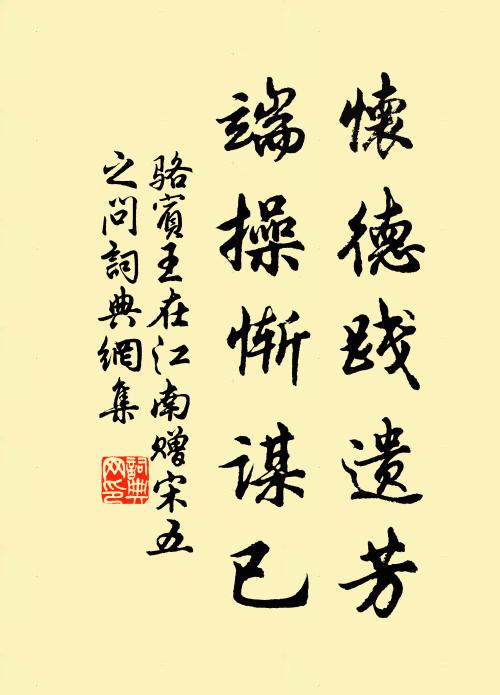 懷德践遗芳
端操惭谋已
骆賓王在江南赠宋五
之问詞典網集
詞典网印